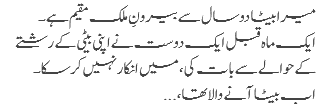 میرا بیٹا دو سال سے بیرونِ ملک مقیم ہے۔
ایک ماہ قبل ایک دوست نے اپنی بیٹی کے رشتے
کے حوالے سے بات کی، میں انکار نہیں کر سکا۔
اب بیٹا آنے والا تھا،...